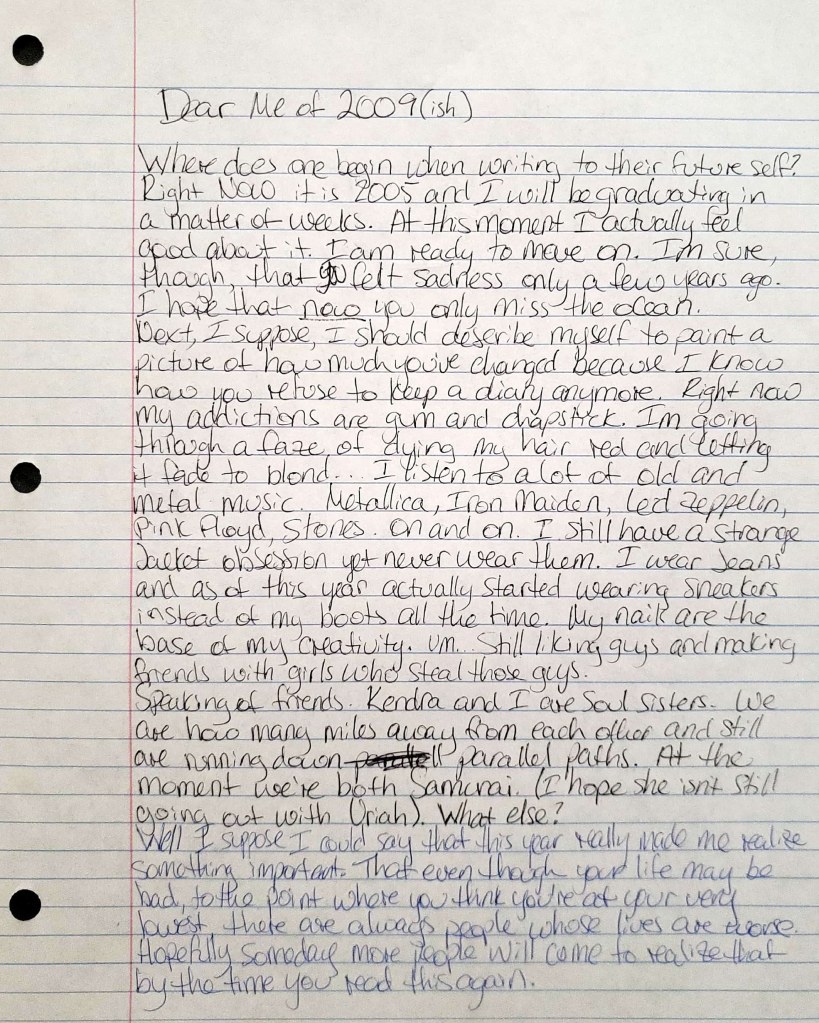 Dear Me of 2009(ish)
Where does one begin when writing to their future self?
Right Now it is 2005 and I will be graduating in
a matter of weeks. At this moment I actually feel
good about it. I am ready to move on. I'm sure,
though, that you felt sadness only a few years ago.
I hope that now you only miss the ocean.
Next, I suppose, I should describe myself to paint a
picture of how much you've changed because I know
how you refuse to keep a diary anymore. Right now
my addictions are gum and chapstick. Im going
through a faze of dying my hair red and letting
it fade to blond... I listen to a lot of old and
metal music. Metallica, Iron Maiden, Led Zeppelin,
Pink Floyd, Stones. On and on. I still have a strange
Jacket obsession yet never wear them. I wear Jeans
and as of this year actually started wearing sneakers
instead of my boots all the time. My nails are the
base of my creativity. Um... Still liking guys and making
friends with girls who steal those guys.
Speaking of friends. Kendra and I are Soul Sisters. We
are how many miles away from each other and still
are running down parallel paths. At the
moment we're both Samurai. (I hope she isn't still
going out with Uriah). What else?
Well I suppose I could say that this year really made me realize
something important. That even though your life may be
bad, to the point where you think you're at your very
lowest, there are always people whose lives are worse.
Hopefully someday more people will come to realize that
by the time you read this again.